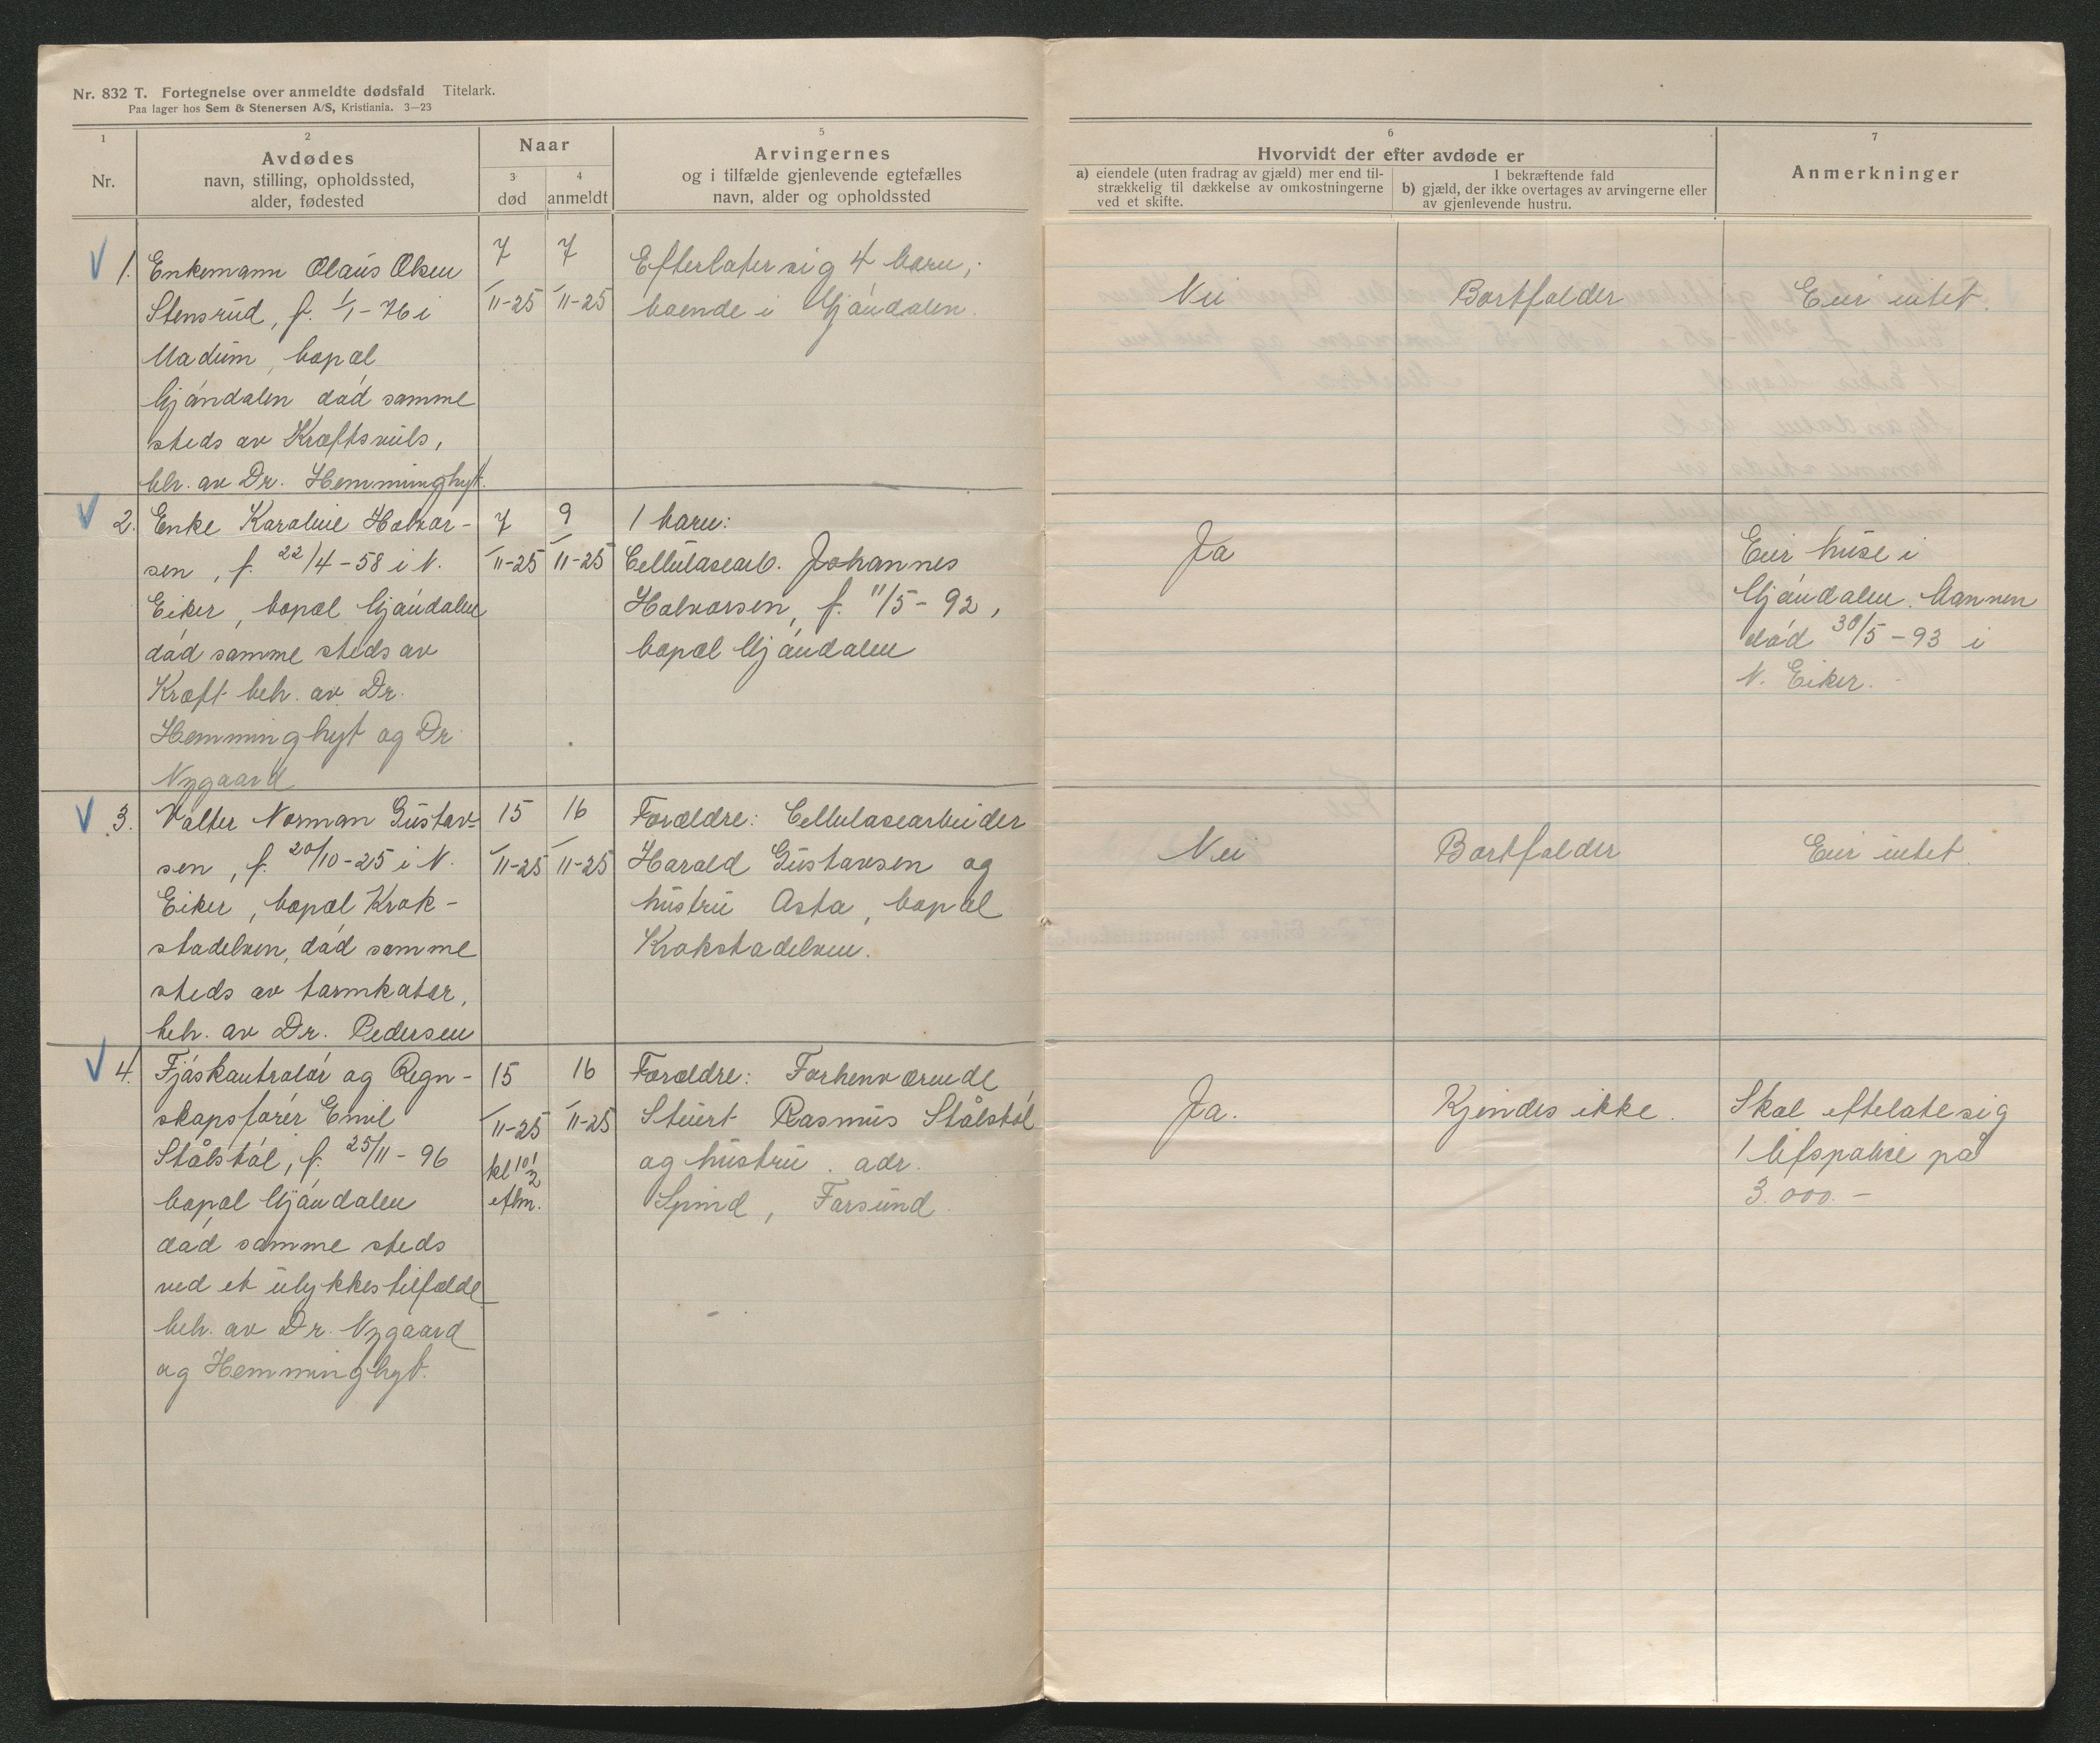 Nr. 832 T. Fortegnelse over anmeldte dødsfald Titelark.
Paa lager hos Sem & Stenersen A/S, Kristiania. 3—23
1
Nr.
2
Avdødes
navn, stilling, opholdssted,
alder, fødested
Naar
3
død
4
anmeldt
5
Arvingernes
og i tilfælde gjenlevende egtefælles
navn, alder og opholdssted
6
Hvorvidt der efter avdøde er
a) eiendele (uten fradrag av gjæld) mer end til-
strækkelig til dækkelse av omkostningerne
ved et skifte.
I bekræftende fald
b) gjæld, der ikke overtages av arvingerne eller
av gjenlevende hustru.
7
Anmerkninger
V 1.
Enkemann Olaus Olsen
Stensrud, f. 1/1-76 i
Modum, bopæl
Mjøndalen død samme
steds av Kræftsvuls,
beh. av Dr. Hemminghyt.
7/11-25
7/11-25
Efterlater sig 4 barn,
boende i Mjøndalen.
Nei
Bortfalder
Eier intet.
V 2.
Enke Karoline Halvor-
sen, f. 22/4-58 i N.
Eiker, bopæl Mjøndalen
død samme steds av
Kræft beh. av Dr.
Hemminghyt og Dr
Nygaard
7/11-25
9/11-25
1 barn:
Cellulosearb. Johannes
Halvorsen, f. 11/5-92,
bopæl Mjøndalen
Ja
Eier huse i
Mjøndalen. Mannen
død 30/5-93 i
N. Eiker.
V 3.
Valter Norman Gustav-
sen, f. 20/10-25 i N.
Eiker, bopæl Krok-
stadelven, død samme
steds av tarmkatar,
beh. av Dr. Pedersen
15/11-25
16/11-25
Forældre: Cellulosearbeider
Harald Gustavsen og
hustru Asta, bopæl
Krokstadelven.
Nei
Bortfalder
Eier intet.
V 4.
Fjøskontrolør og Regn-
skapsfører Emil
Stålstøl, f. 25/11-96
bopæl Mjøndalen
død samme steds
ved et ulykkestilfælde
beh. av Dr. Nygaard
og Hemminghyt.
15/11-25
kl 10 1/2
eftm.
16/11-25
Forældre: Forhenværende
Stuert Rasmus Stålstøl
og hustru. adr.
Spind, Farsund.
Ja.
Kjendes ikke.
Skal eftelate sig
1 lifspolice på
3.000.-